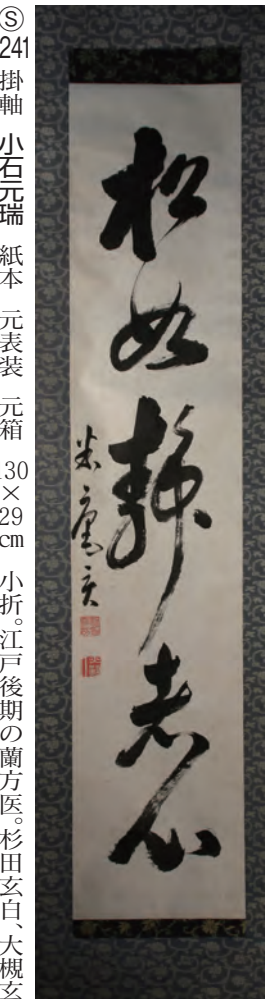 Ⓢ241 掛軸 小石元瑞 紙本 元表装 元箱 130×29cm 小折。江戸後期の蘭方医。杉田玄白、大槻玄
松如静者心